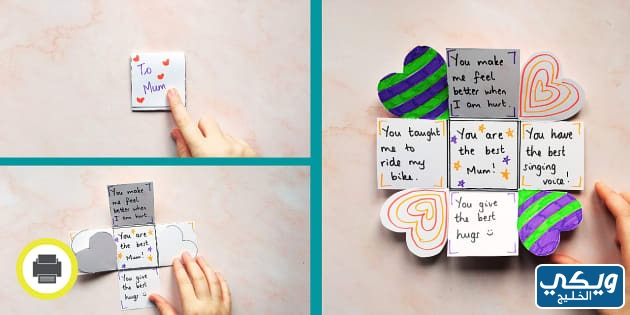 To
Mum
You make
me feel
better when
I am hurt.
You are
the best
Mum!
You give
the best
hugs
You make
me feel
better when
I am hurt.
You taught
me to
ride my
bike.
You are
the best
Mum!
You have
the best
singing
voice!
You give
the best
hugs
ويكي
الخليج